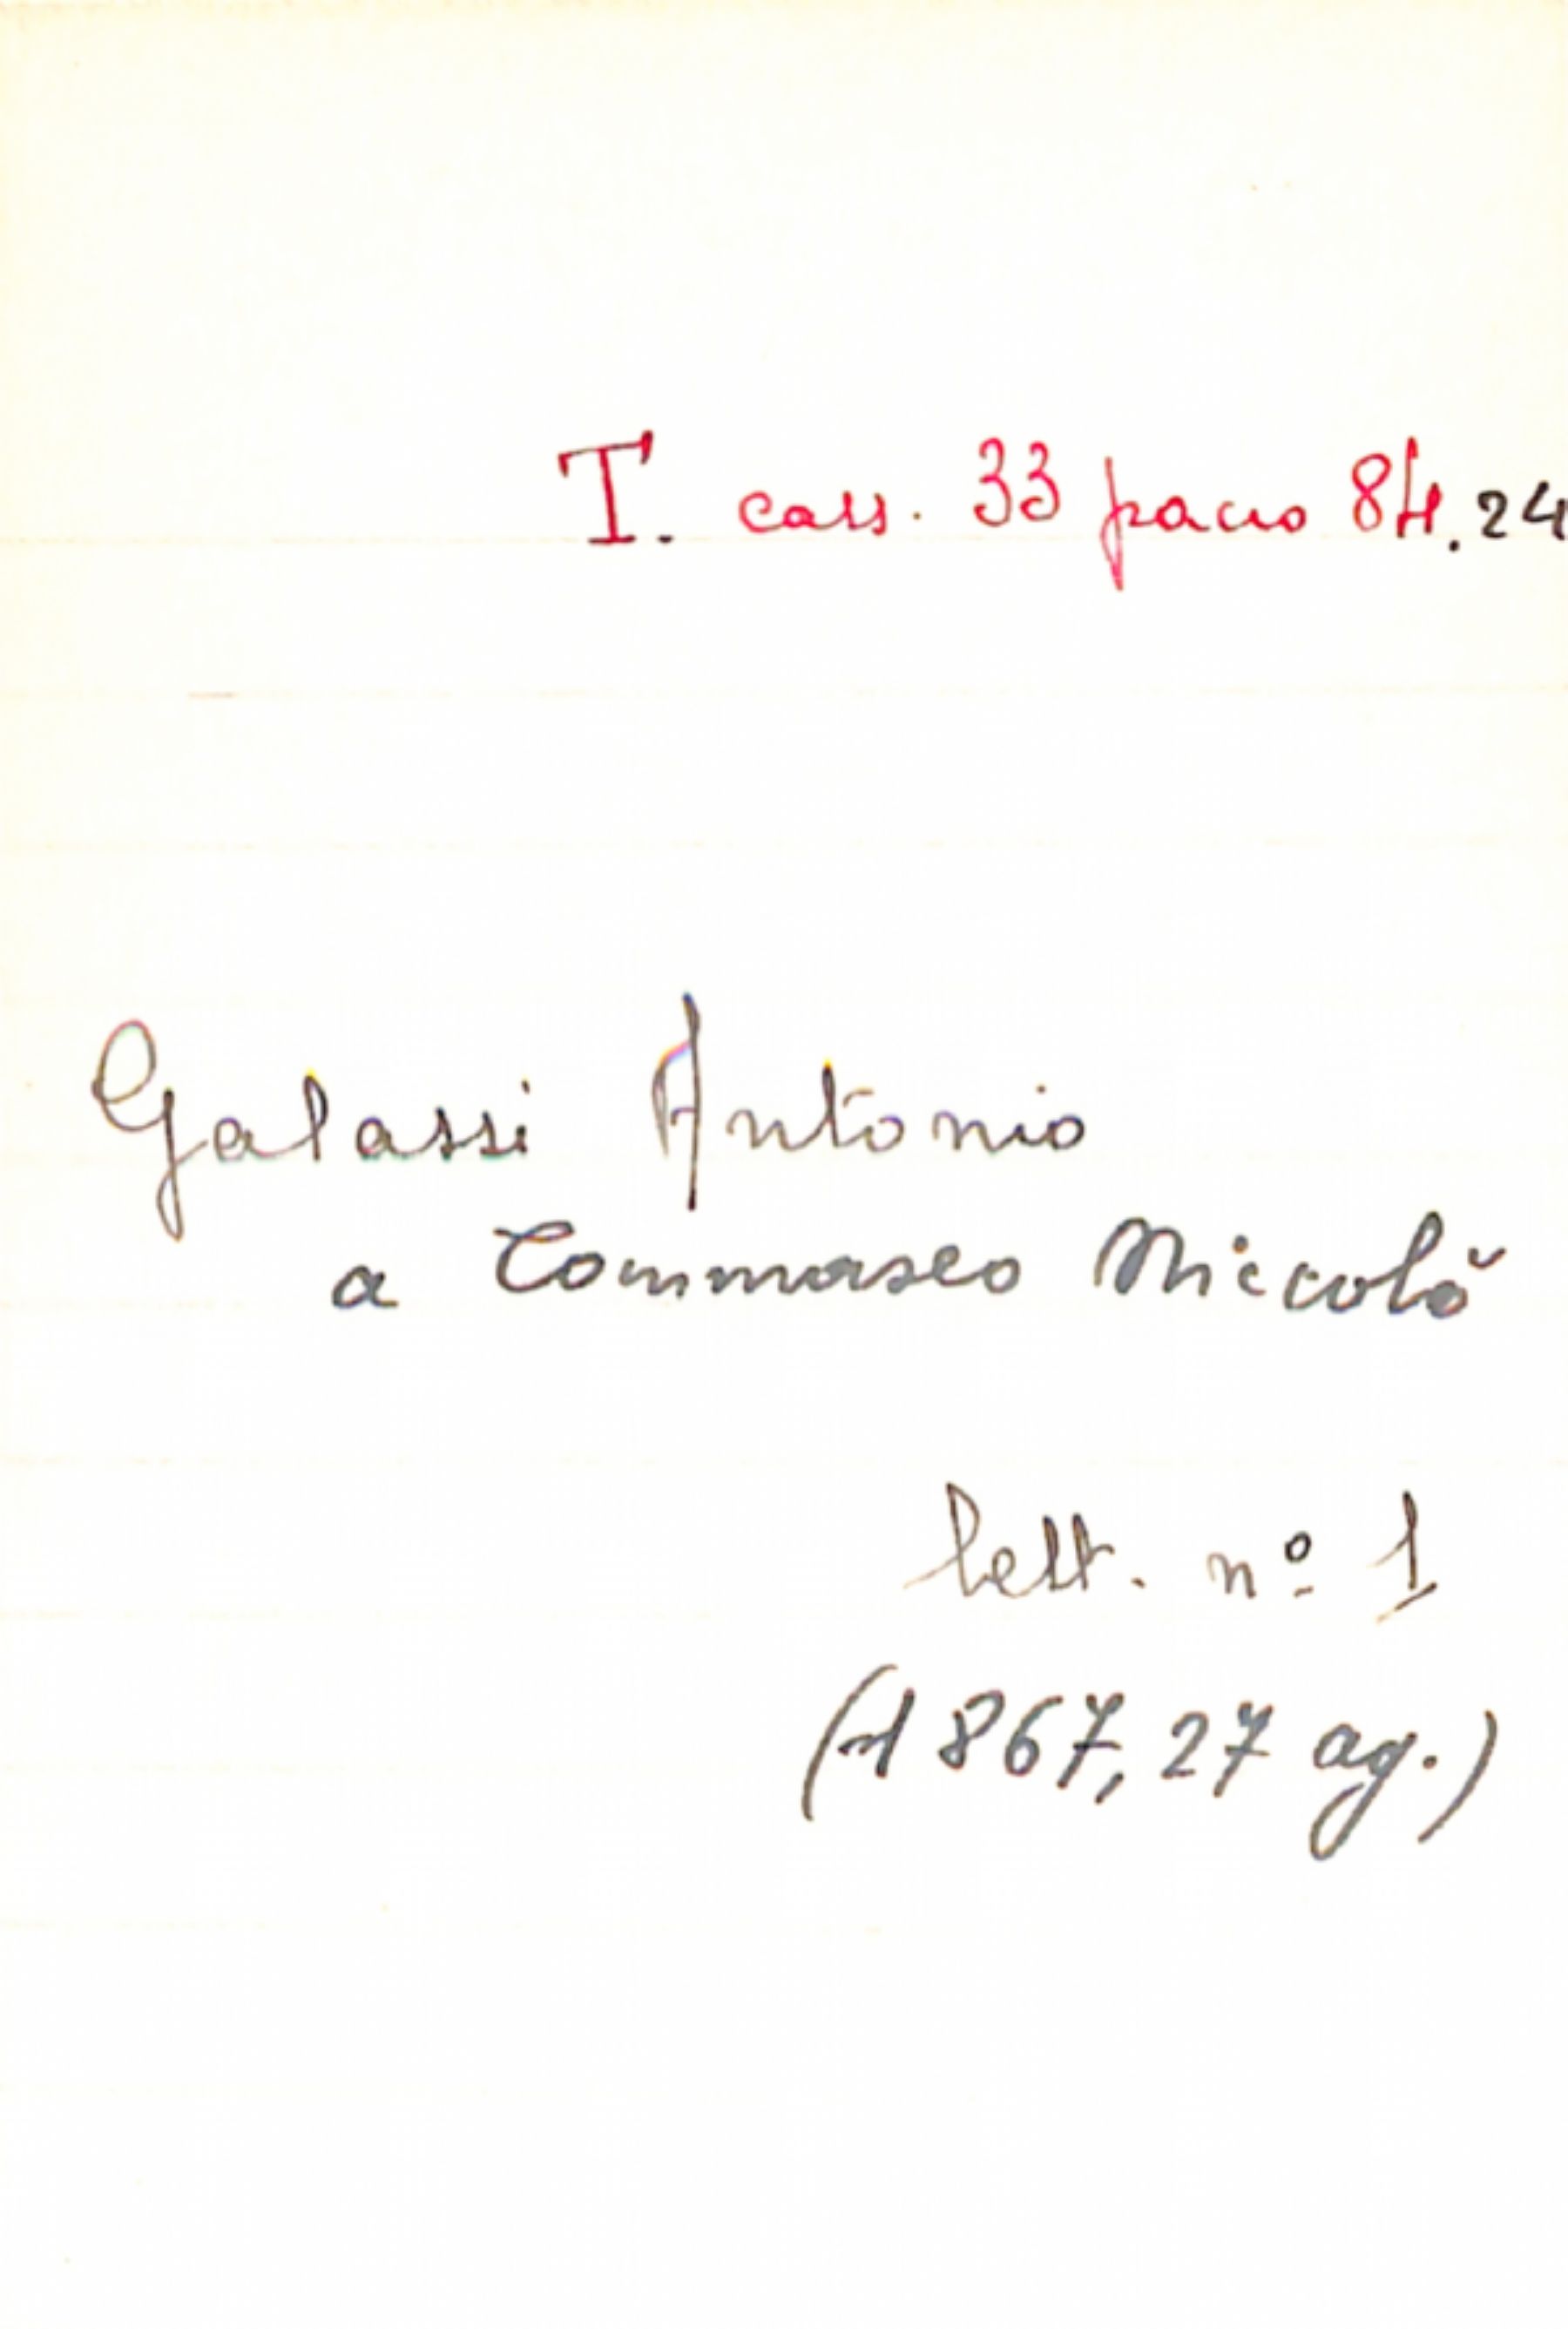 T. cass. 33 pacco 84.24
Galassi Antonio
a Tommaseo Niccolò
lett. nº 1
(1867, 27 ag.)